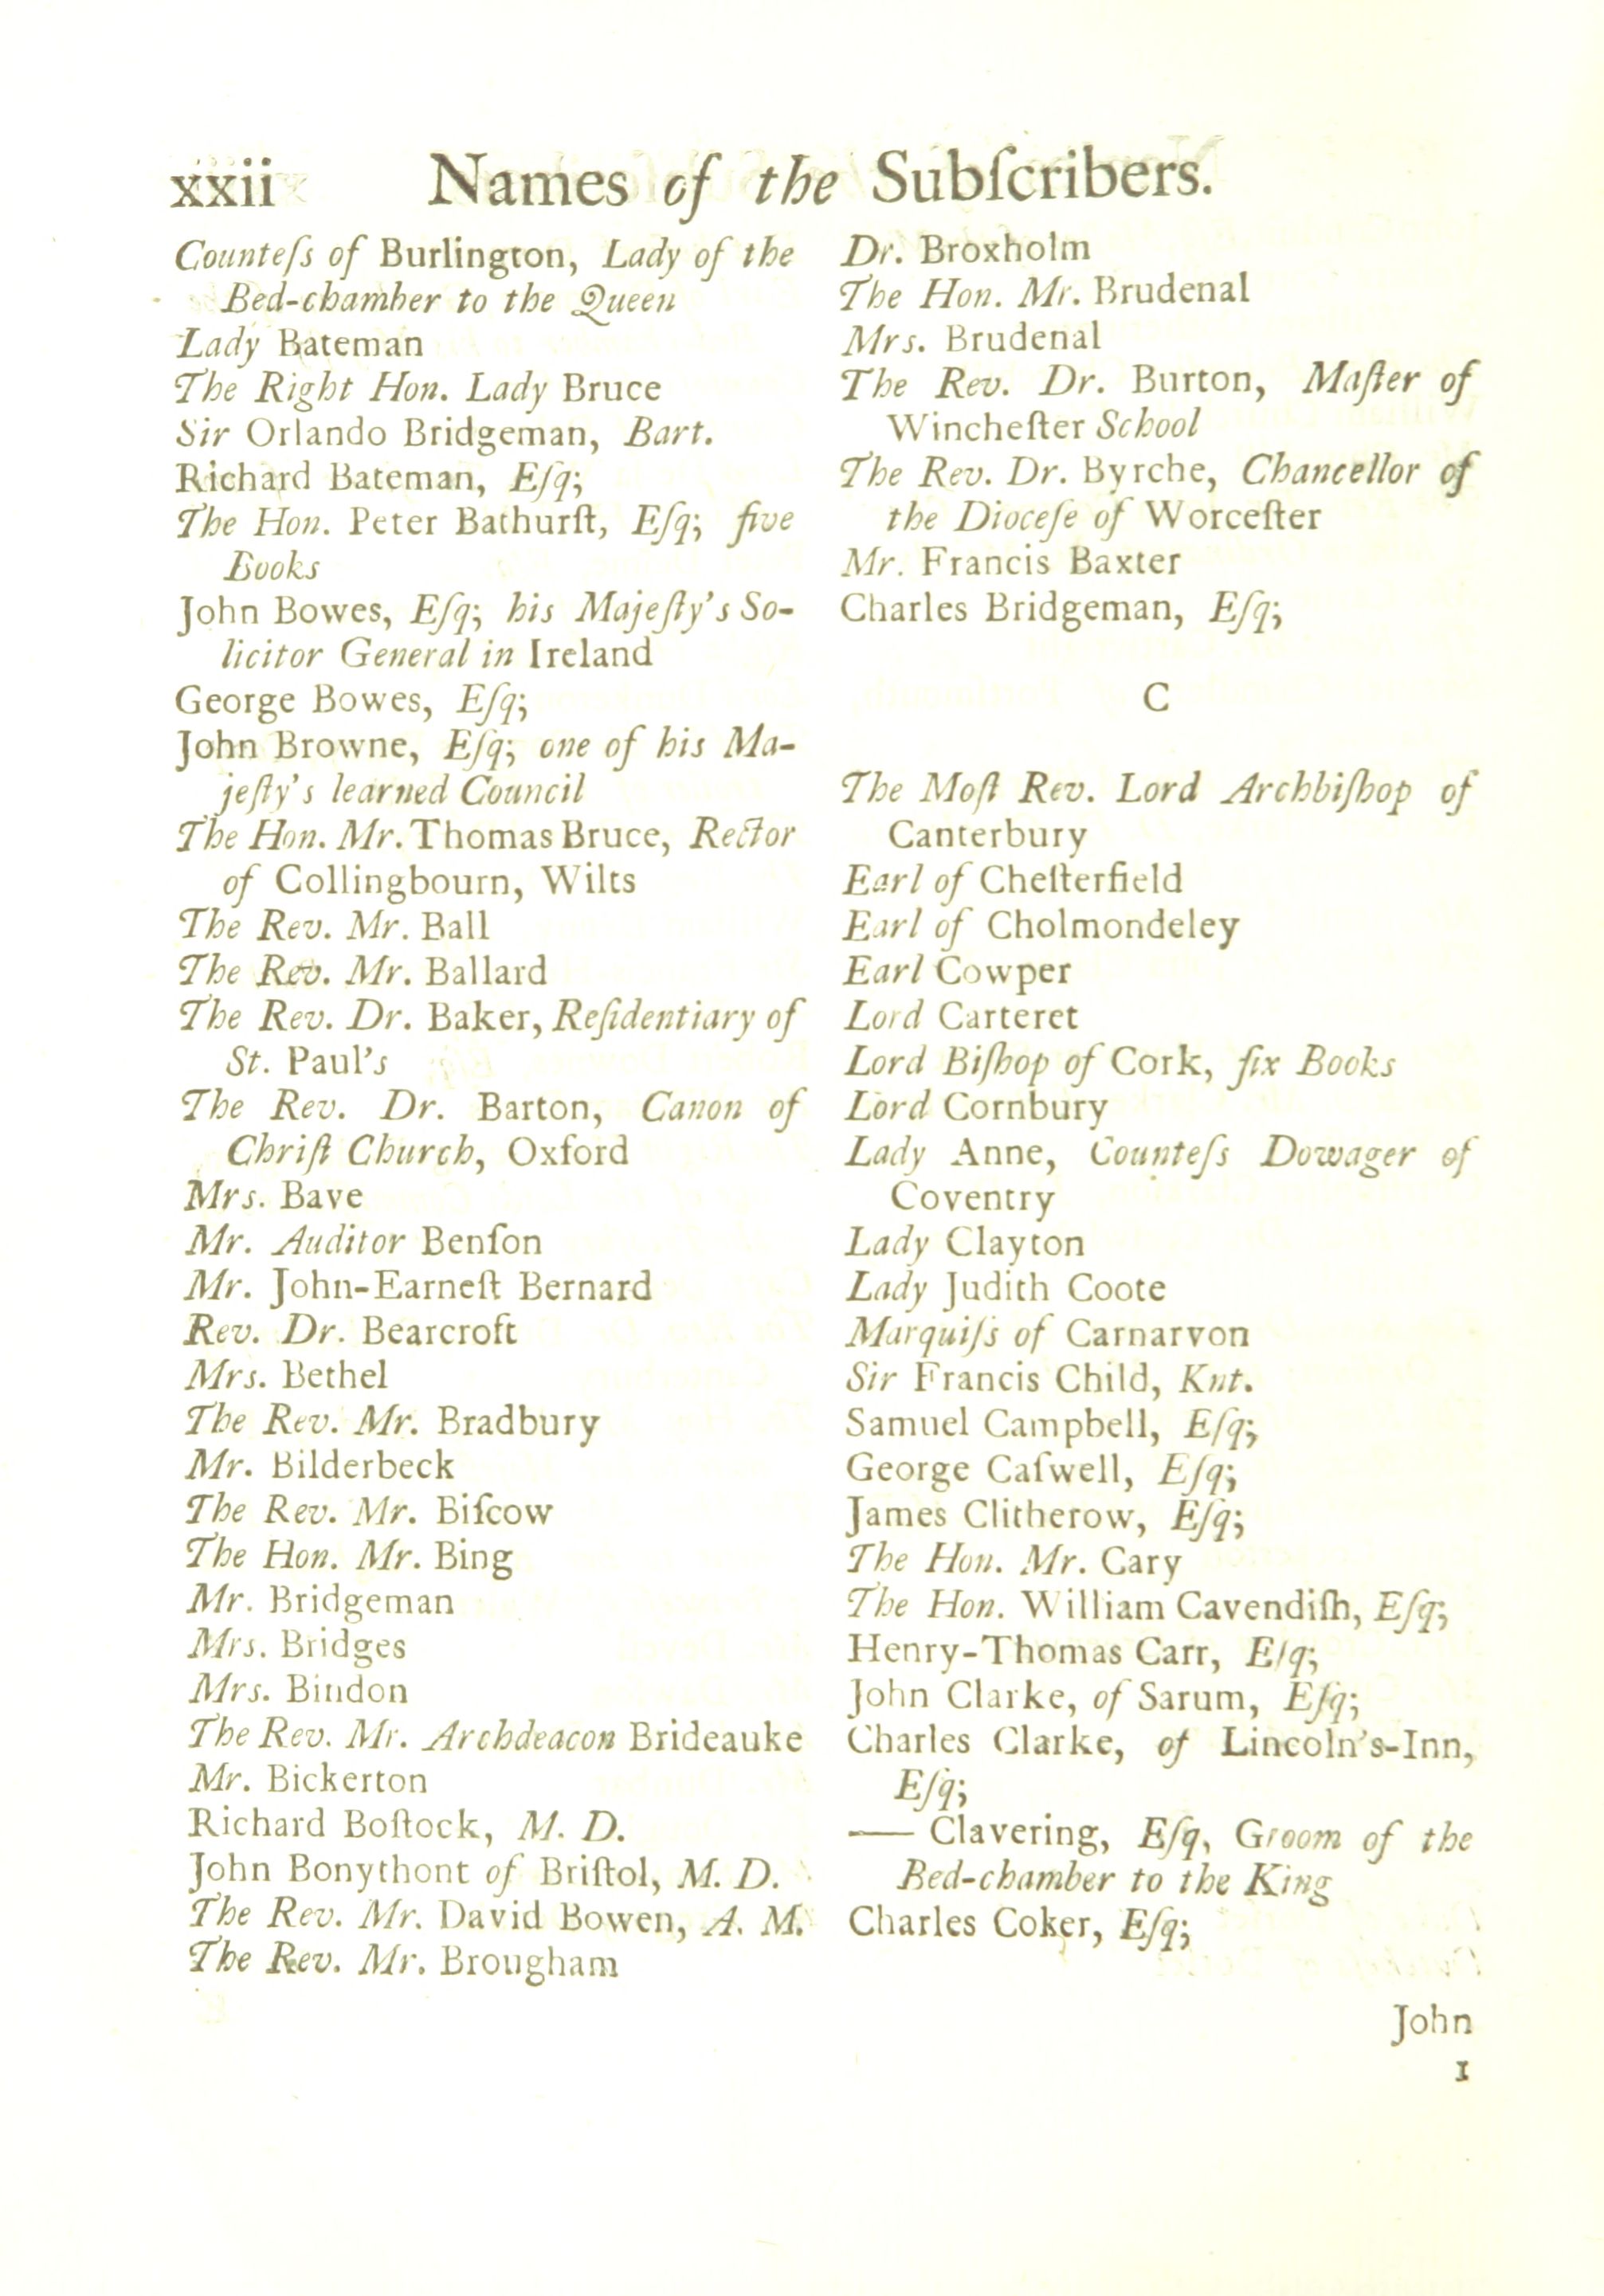 xxii Names of the Subſcribers.
Counteſs of Burlington, Lady of the
Bed-chamber to the Queen
Lady Bateman
The Right Hon. Lady Bruce
Sir Orlando Bridgeman, Bart.
Richard Bateman, Eſq;
The Hon. Peter Bathurſt, Eſq; five
Books
John Bowes, Eſq; his Majeſty's So-
licitor General in Ireland
George Bowes, Eſq;
John Browne, Eſq; one of his Ma-
jeſty's learned Council
The Hon. Mr. Thomas Bruce, Rector
of Collingbourn, Wilts
The Rev. Mr. Ball
The Rev. Mr. Ballard
The Rev. Dr. Baker, Reſidentiary of
St. Paul's
The Rev. Dr. Barton, Canon of
Chriſt Church, Oxford
Mrs. Bave
Mr. Auditor Benſon
Mr. John-Earneſt Bernard
Rev. Dr. Bearcroft
Mrs. Bethel
The Rev. Mr. Bradbury
Mr. Bilderbeck
The Rev. Mr. Biſcow
The Hon. Mr. Bing
Mr. Bridgeman
Mrs. Bridges
Mrs. Bindon
The Rev. Mr. Archdeacon Brideauke
Mr. Bickerton
Richard Boſtock, M. D.
John Bonythont of Briſtol, M. D.
The Rev. Mr. David Bowen, A. M.
The Rev. Mr. Brougham
Dr. Broxholm
The Hon. Mr. Brudenal
Mrs. Brudenal
The Rev. Dr. Burton, Maſter of
Wincheſter School
The Rev. Dr. Byrche, Chancellor of
the Dioceſe of Worceſter
Mr. Francis Baxter
Charles Bridgeman, Eſq;
C
The Moſt Rev. Lord Archbiſhop of
Canterbury
Earl of Cheſterfield
Earl of Cholmondeley
Earl Cowper
Lord Carteret
Lord Biſhop of Cork, ſix Books
Lord Cornbury
Lady Anne, Counteſs Dowager of
Coventry
Lady Clayton
Lady Judith Coote
Marquiſs of Carnarvon
Sir Francis Child, Knt.
Samuel Campbell, Eſq;
George Caſwell, Eſq;
James Clitherow, Eſq;
The Hon. Mr. Cary
The Hon. William Cavendiſh, Eſq;
Henry-Thomas Carr, Eſq;
John Clarke, of Sarum, Eſq;
Charles Clarke, of Lincoln's-Inn,
Eſq;
—— Clavering, Eſq, Groom of the
Bed-chamber to the King
Charles Coker, Eſq;
John
1